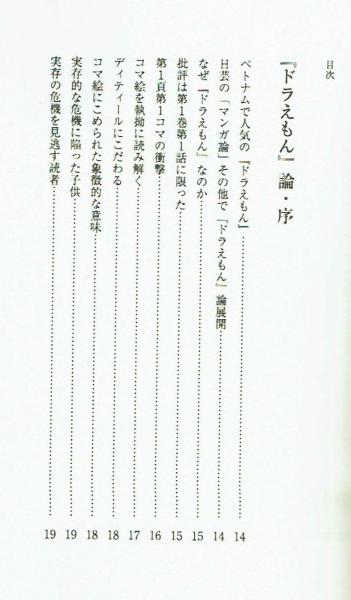 目次
『ドラえもん』論・序
ベトナムで人気の『ドラえもん』……14
日芸の「マンガ論」その他で『ドラえもん』論展開……14
なぜ『ドラえもん』なのか……15
批評は第1巻第1話に限った……15
第1頁第1コマの衝撃……16
コマ絵を執拗に読み解く……17
ディティールにこだわる……18
コマ絵にこめられた象徴的な意味……18
実存的な危機に陥った子供……19
実存の危機を見逃す読者……19